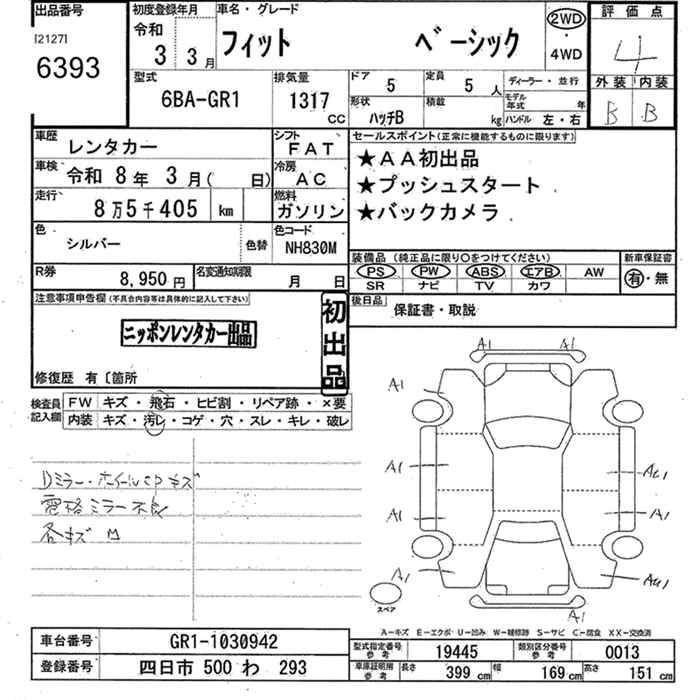 出品番号 初度登録年月 車名・グレード 評価点
[2127] 令和 2WD
6393 3 3月 フィット ベーシック ・ 4
4WD
型式 排気量 ドア 5 定員 5人 ディーラー・並行 外装 内装
6BA-GR1 1317 CC 形状 ハッチB 積載 kg モデル年式 年 ハンドル 左・右 B B
車歴 レンタカー シフト FAT セールスポイント(正常に機能するものに限ります)
車検 令和 8年 3月( 日) 冷房 AC ★AA初出品
走行 8万5千405 km 燃料 ガソリン ★プッシュスタート
★バックカメラ
色 シルバー 色替 色コード NH830M
装備品 (純正品に限り○をつけてください) 新車保証書
R券 8,950円 名変通知期限 月 日 PS PW ABS エアB AW 有・無
SR ナビ TV カワ
注意事項申告欄(不具合内容等は具体的に記入して下さい) 初出品 後日品 保証書・取説
ニッポンレンタカー出品
修復歴 有〔箇所
検査員記入欄 FW キズ・飛石・ヒビ割・リペア跡・×要
内装 キズ・汚レ・コゲ・穴・スレ・キレ・破レ
Dミラー・ホイールCPキズ
電格ミラー不良
各キズ
A1 A1
A1 A1
A1 AU1
A1 A1
A1 AU1
スペア
A-キズ E-エクボ U-凹み W-補修跡 S-サビ C-腐食 XX-交換済
車台番号 GR1-1030942 型式指定番号 参考 19445 類別区分番号 参考 0013
登録番号 四日市 500 わ 293 車庫証明用 参考 長さ 399 cm 幅 169 cm 高さ 151 cm